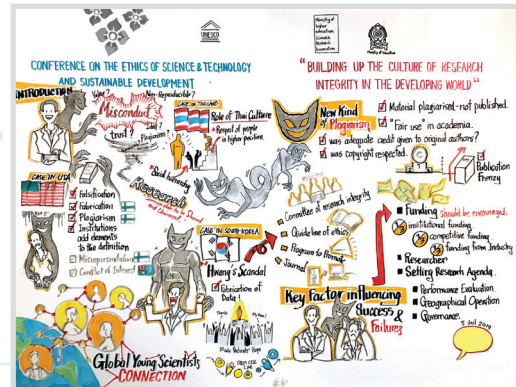 UNESCO
Ministry of
higher
education
Science
Research
Innovation
Ministry of Education
CONFERENCE ON THE ETHICS OF SCIENCE & TECHNOLOGY
AND SUSTAINABLE DEVELOPMENT
"BUILDING UP THE CULTURE OF RESEARCH
INTEGRITY IN THE DEVELOPING WORLD"
INTRODUCTION
Value?
Non-Reproducible?
Misconduct
trust?
Idea?
Plagiarism?
CASE IN THAILAND
Role of Thai Culture
Respect of people
in higher position.
Said honestly
Research
CASE IN USA
Falsification
Fabrication
Plagiarism
Institutions
add elements
to the definition
Misrepresentation
Conflict of Interest
CASE IN SOUTH-KOREA
Hwang's Scandal
Fabrication of
Data!
Made Patients' Hope
STEM CELL
LINE
Global Young Scientists
CONNECTION
New Kind
of Plagiarism
Material plagiarised-not published.
"Fair use" in academia.
was adequate credit given to original authors?
was copyright respected.
Publication
Frenzy
Committee of research integrity
Guideline of ethics
Program to Promote
Journal
Funding should be encouraged.
1/3 institutional funding
1/3 competitive funding
1/3 funding from Industry
Researcher
Setting Research Agenda.
Performance Evaluation
Geographical Operation
Governance.
Key Factor influencing
Success &
Failures
5 Jul 2019